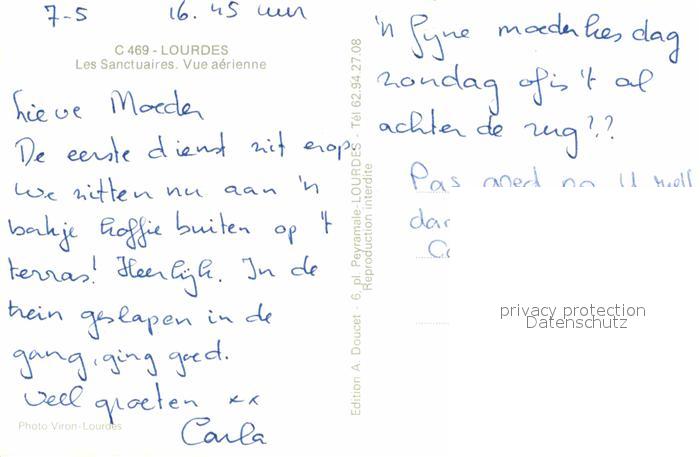 7-5 16.45 uur
C 469 - LOURDES
Les Sanctuaires. Vue aérienne
Lieve Moeder
De eerste dienst zit erop.
We zitten nu aan 'n
bakje koffie buiten op 't
terras! Heerlijk. In de
trein geslapen in de
gang, ging goed.
Veel groeten xx
Carla
Photo Viron-Lourdes
Edition A. Doucet - 6, pl. Peyramale-LOURDES - Tél 62.94.27.08
Reproduction interdite
'n fyne moederkes dag
zondag of is 't al
achter de rug??
Pas goed op U zelf
privacy protection
Datenschutz